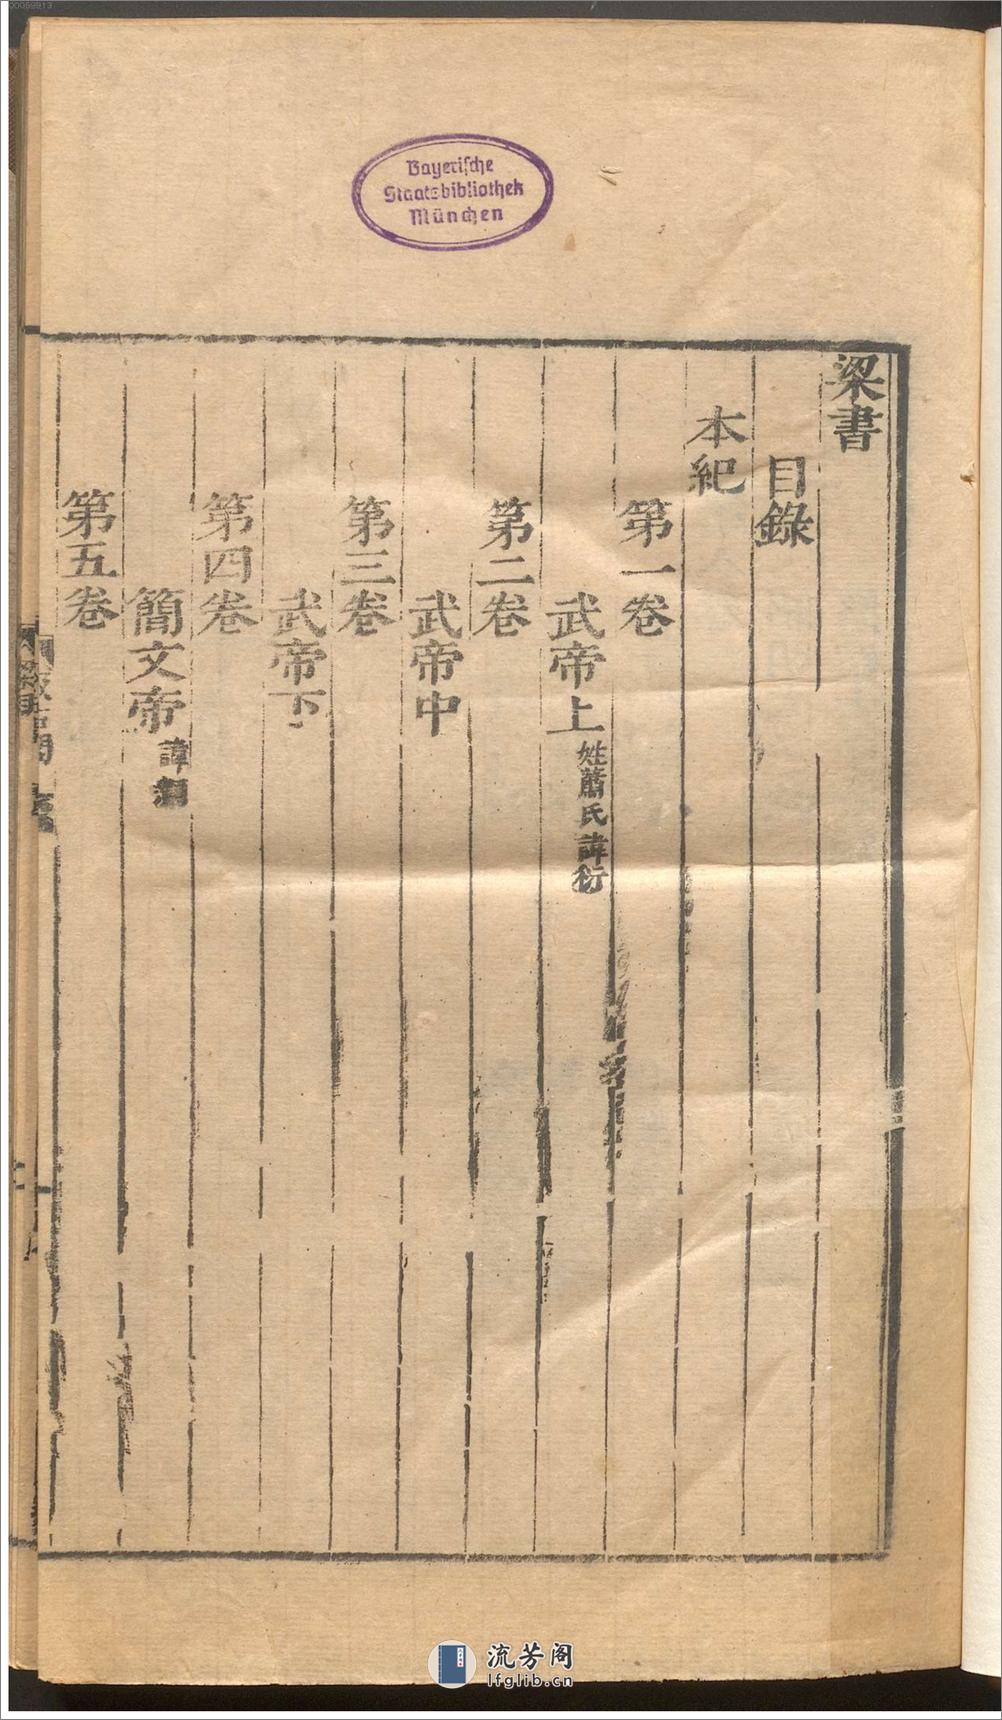 00059913
Bayerische
Staatsbibliothek
München
梁書
目錄
本紀
第一卷
武帝上姓蕭氏諱衍
第二卷
武帝中
第三卷
武帝下
第四卷
簡文帝諱
第五卷
流芳阁
lfglib.cn